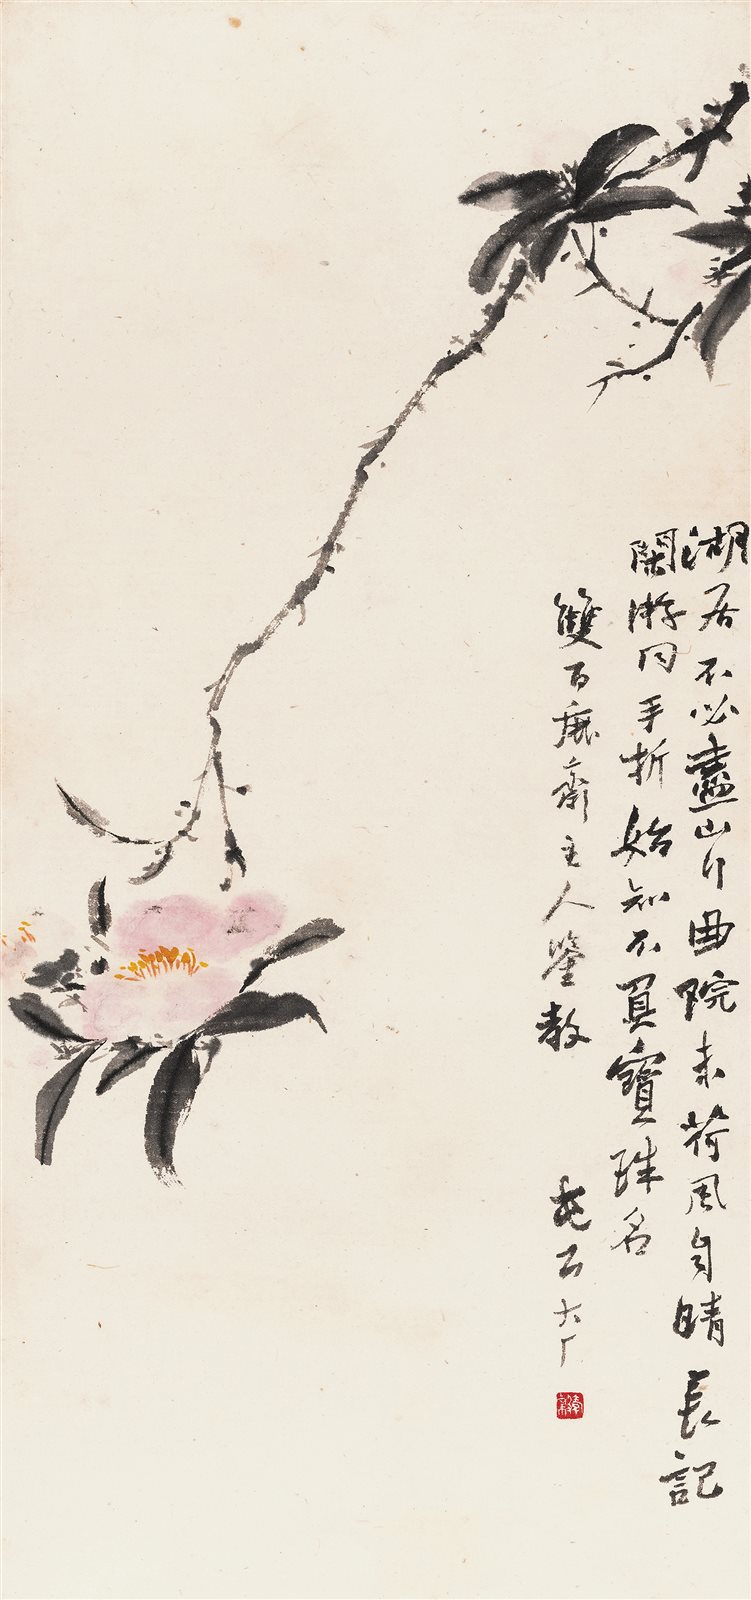 湖居不必盡山行曲院未荷風自晴長記
閑游同手折始知不負寶珠名
雙百鹿齋主人鑒教
大厂